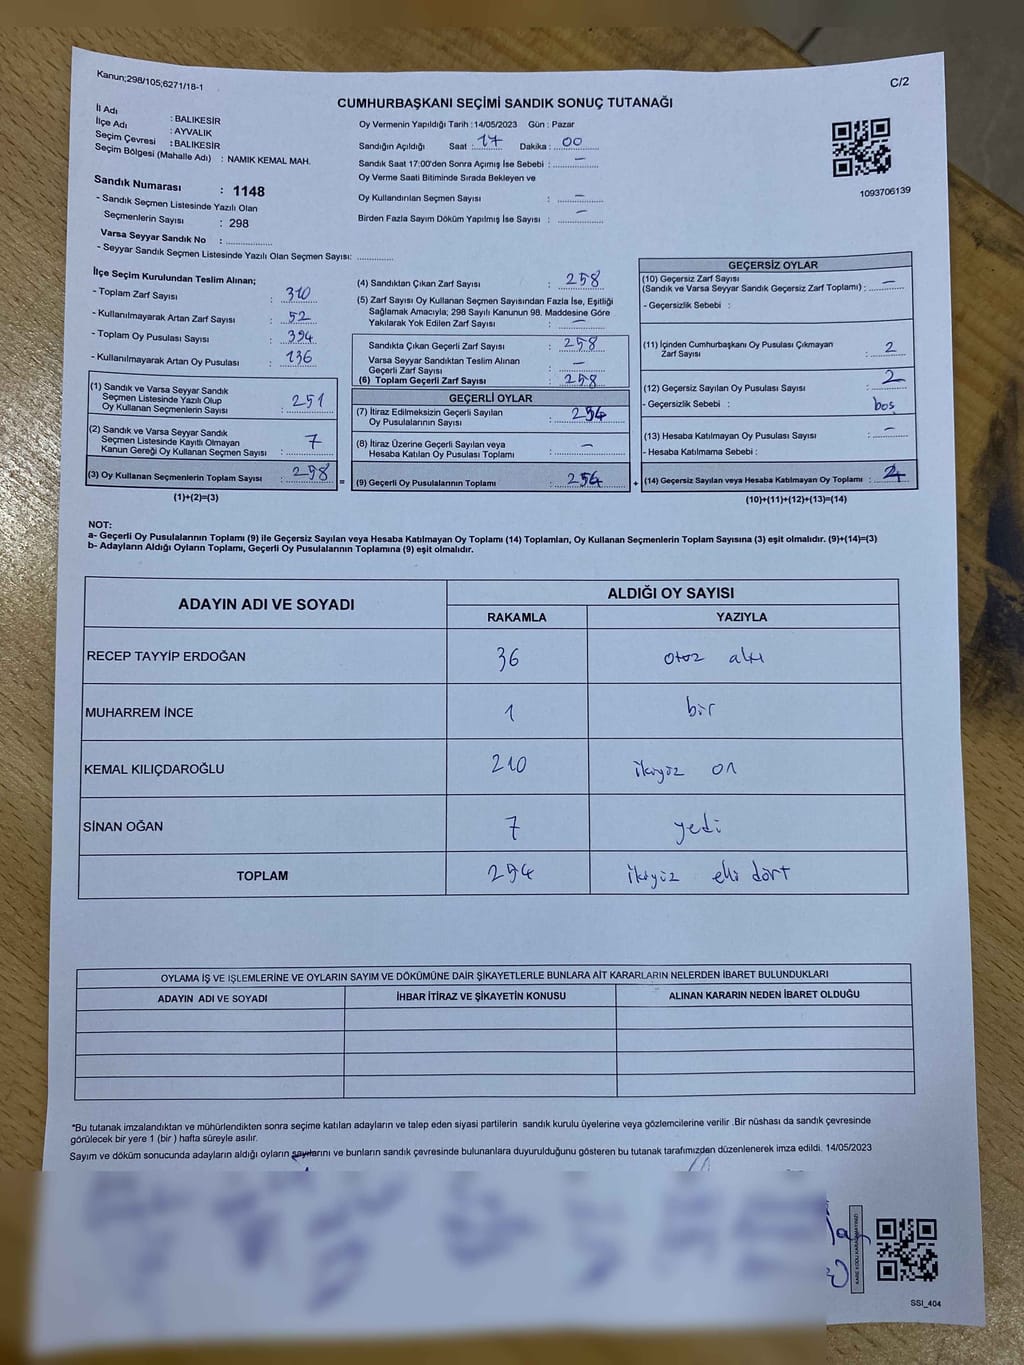 Kanun;298/105;6271/18-1
C/2
CUMHURBAŞKANI SEÇİMİ SANDIK SONUÇ TUTANAĞI
İl Adı : BALIKESİR
İlçe Adı : AYVALIK
Seçim Çevresi : BALIKESİR
Seçim Bölgesi (Mahalle Adı) : NAMIK KEMAL MAH.
Sandık Numarası : 1148
- Sandık Seçmen Listesinde Yazılı Olan
Seçmenlerin Sayısı : 298
Varsa Seyyar Sandık No :
- Seyyar Sandık Seçmen Listesinde Yazılı Olan Seçmen Sayısı:
Oy Vermenin Yapıldığı Tarih :14/05/2023 Gün : Pazar
Sandığın Açıldığı Saat : 17 Dakika : 00
Sandık Saat 17:00'den Sonra Açımış İse Sebebi : —
Oy Verme Saati Bitiminde Sırada Bekleyen ve
Oy Kullandırılan Seçmen Sayısı : —
Birden Fazla Sayım Döküm Yapılmış İse Sayısı : —
1093706139
İlçe Seçim Kurulundan Teslim Alınan;
- Toplam Zarf Sayısı : 310
- Kullanılmayarak Artan Zarf Sayısı : 52
- Toplam Oy Pusulası Sayısı : 394
- Kullanılmayarak Artan Oy Pusulası : 136
(1) Sandık ve Varsa Seyyar Sandık
Seçmen Listesinde Yazılı Olup
Oy Kullanan Seçmenlerin Sayısı : 251
(2) Sandık ve Varsa Seyyar Sandık
Seçmen Listesinde Kayıtlı Olmayan
Kanun Gereği Oy Kullanan Seçmen Sayısı : 7
(3) Oy Kullanan Seçmenlerin Toplam Sayısı : 258
(1)+(2)=(3)
=
(4) Sandıktan Çıkan Zarf Sayısı : 258
(5) Zarf Sayısı Oy Kullanan Seçmen Sayısından Fazla İse, Eşitliği
Sağlamak Amacıyla; 298 Sayılı Kanunun 98. Maddesine Göre
Yakılarak Yok Edilen Zarf Sayısı : —
Sandıkta Çıkan Geçerli Zarf Sayısı : 258
Varsa Seyyar Sandıktan Teslim Alınan
Geçerli Zarf Sayısı : —
(6) Toplam Geçerli Zarf Sayısı : 258
GEÇERLİ OYLAR
(7) İtiraz Edilmeksizin Geçerli Sayılan
Oy Pusulalarının Sayısı : 254
(8) İtiraz Üzerine Geçerli Sayılan veya
Hesaba Katılan Oy Pusulası Toplamı : —
(9) Geçerli Oy Pusulalarının Toplamı : 254
+
GEÇERSİZ OYLAR
(10) Geçersiz Zarf Sayısı
(Sandık ve Varsa Seyyar Sandık Geçersiz Zarf Toplamı) : —
- Geçersizlik Sebebi :
(11) İçinden Cumhurbaşkanı Oy Pusulası Çıkmayan
Zarf Sayısı : 2
(12) Geçersiz Sayılan Oy Pusulası Sayısı : 2
- Geçersizlik Sebebi : boş
(13) Hesaba Katılmayan Oy Pusulası Sayısı : —
- Hesaba Katılmama Sebebi :
(14) Geçersiz Sayılan veya Hesaba Katılmayan Oy Toplamı : 4
(10)+(11)+(12)+(13)=(14)
NOT:
a- Geçerli Oy Pusulalarının Toplamı (9) ile Geçersiz Sayılan veya Hesaba Katılmayan Oy Toplamı (14) Toplamları, Oy Kullanan Seçmenlerin Toplam Sayısına (3) eşit olmalıdır. (9)+(14)=(3)
b- Adayların Aldığı Oyların Toplamı, Geçerli Oy Pusulalarının Toplamına (9) eşit olmalıdır.
ADAYIN ADI VE SOYADI
ALDIĞI OY SAYISI
RAKAMLA YAZIYLA
RECEP TAYYİP ERDOĞAN 36 otuz altı
MUHARREM İNCE 1 bir
KEMAL KILIÇDAROĞLU 210 ikiyüz on
SİNAN OĞAN 7 yedi
TOPLAM 254 ikiyüz elli dört
OYLAMA İŞ VE İŞLEMLERİNE VE OYLARIN SAYIM VE DÖKÜMÜNE DAİR ŞİKAYETLERLE BUNLARA AİT KARARLARIN NELERDEN İBARET BULUNDUKLARI
ADAYIN ADI VE SOYADI İHBAR İTİRAZ VE ŞİKAYETİN KONUSU ALINAN KARARIN NEDEN İBARET OLDUĞU
*Bu tutanak imzalandıktan ve mühürlendikten sonra seçime katılan adayların ve talep eden siyasi partilerin sandık kurulu üyelerine veya gözlemcilerine verilir .Bir nüshası da sandık çevresinde
görülecek bir yere 1 (bir ) hafta süreyle asılır.
Sayım ve döküm sonucunda adayların aldığı oyların sayılarını ve bunların sandık çevresinde bulunanlara duyurulduğunu gösteren bu tutanak tarafımızdan düzenlenerek imza edildi. 14/05/2023
KARE KODU KARALAMAYINIZ!
SSI_404